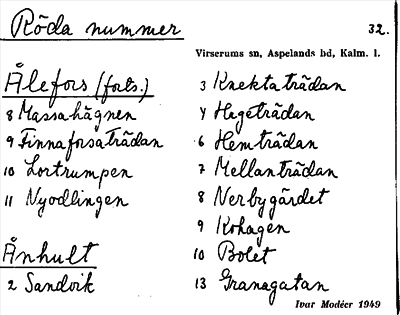 Röda nummer
32.
Virserums sn, Aspelands hd, Kalm. l.
Ålefors (forts.)
8 Massahägnen
9 Finnaforsaträdan
10 Lortrumpen
11 Nyodlingen
Ånhult
2 Sandvik
3 Knektaträdan
4 Hegeträdan
6 Hemträdan
7 Mellanträdan
8 Nerbygärdet
9 Kohagen
10 Bolet
13 Granagatan
Ivar Modéer 1949